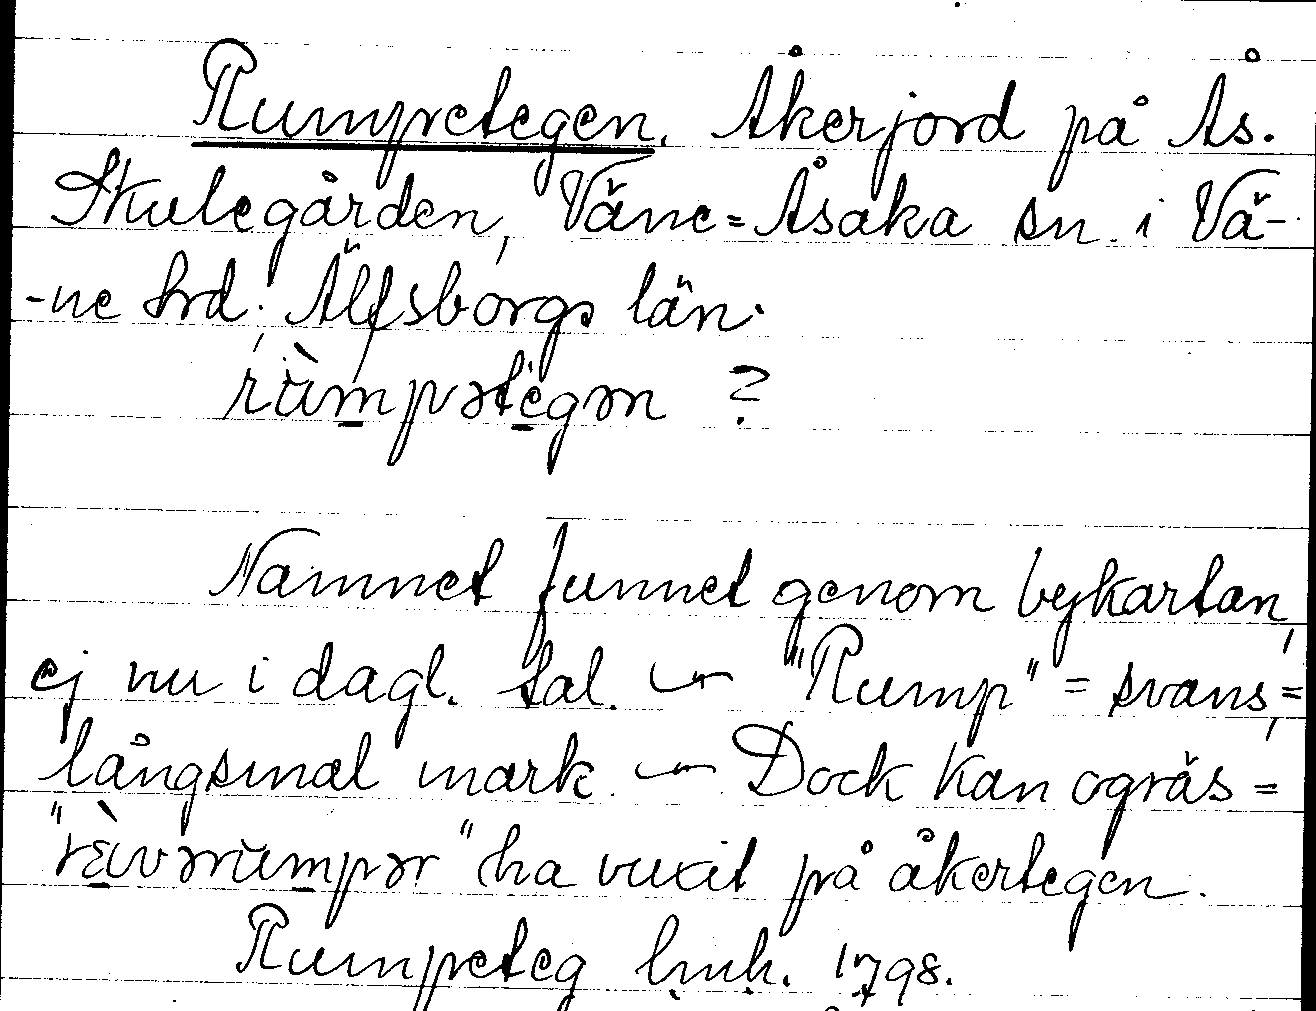 Rumpetegen. Åkerjord på Ås.
Skulegården, Väne=Åsaka sn. i Vä-
-ne hrd. Älfsborgs län.
rùmpətègən ?
Namnet funnet genom bykartan,
ej nu i dagl. tal. — "Rump" = svans, =
långsmal mark. — Dock kan ogräs =
"rävərumpər" ha vuxit på åkertegen.
Rumpeteg lmh. 1798.